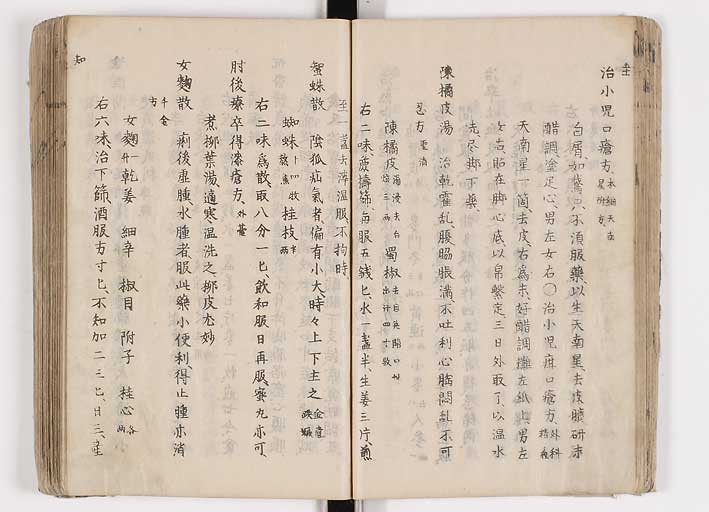 治小児口瘡方
白屑如鵞口不須服藥以生天南星去皮臍研末
醋調塗足心男左女右〇治小児疳口瘡方
天南星一箇去皮右為末好醋調攤在紙上男左
女右貼在脚心底以帛繋定三日外取了以温水
洗尽却下藥
陳橘皮湯 治乾霍乱腹脇脹満不吐利心胸悶乱不可
忍方
陳橘皮 湯浸去白 蜀椒 去目并閉口
右二味麁擣篩毎服五銭匕水一盞半生姜三片煎
至一盞去滓温服不拘時
蜘蛛散 陰狐疝氣者偏有小大時々上下主之 金匱
蜘蛛 桂枝
右二味為散取八分一匕飲和服日再服蜜丸亦可
肘後療卒得漆瘡方 外臺
煮柳葉湯適寒温洗之柳皮尤妙
女麴散 痢後虚腫水腫者服此藥小便利得止腫亦消
方 千金
女麴 一升 乾姜 細辛 椒目 附子 桂心 各一兩
右六味治下篩酒服方寸匕不知加二三匕日三産